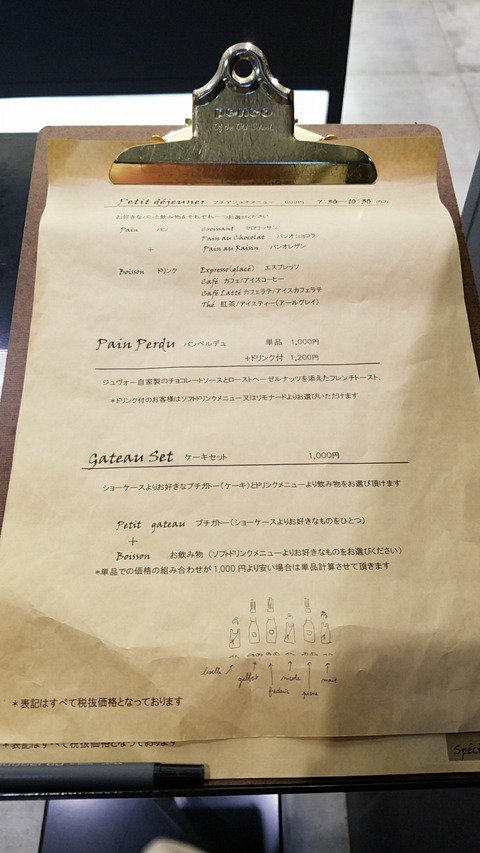 penco
Of the Old School
Petit déjeuner プチデジュネメニュー 600円 7:30〜10:30 のみ
お好きなパンと飲み物をそれぞれ一つお選びください
Pain パン Croissant クロワッサン
Pain au Chocolat パンオショコラ
+ Pain au Raisin パンオレザン
Boisson ドリンク Expresso(glacé) エスプレッソ
Café カフェ/アイスコーヒー
Café Latté カフェラテ/アイスカフェラテ
Thé 紅茶/アイスティー(アールグレイ)
Pain Perdu パンペルデュ 単品 1,000円
+ドリンク付 1,200円
ジュヴォー自家製のチョコレートソースとローストヘーゼルナッツを添えたフレンチトースト。
*ドリンク付のお客様はソフトドリンクメニュー又はリモナードよりお選びいただけます
Gateau Set ケーキセット 1,000円
ショーケースよりお好きなプチガトー(ケーキ)とドリンクメニューより飲み物をお選び頂けます
Petit gateau プチガトー(ショーケースよりお好きなものをひとつ)
+
Boisson お飲み物 (ソフトドリンクメニューよりお好きなものをお選びください)
*単品での価格の組み合わせが 1,000 円より安い場合は単品計算させて頂きます
gilbert
nicole
frederic
pierre
*表記はすべて税抜価格となっております
*表記はすべて税抜価格となっております
Spéci